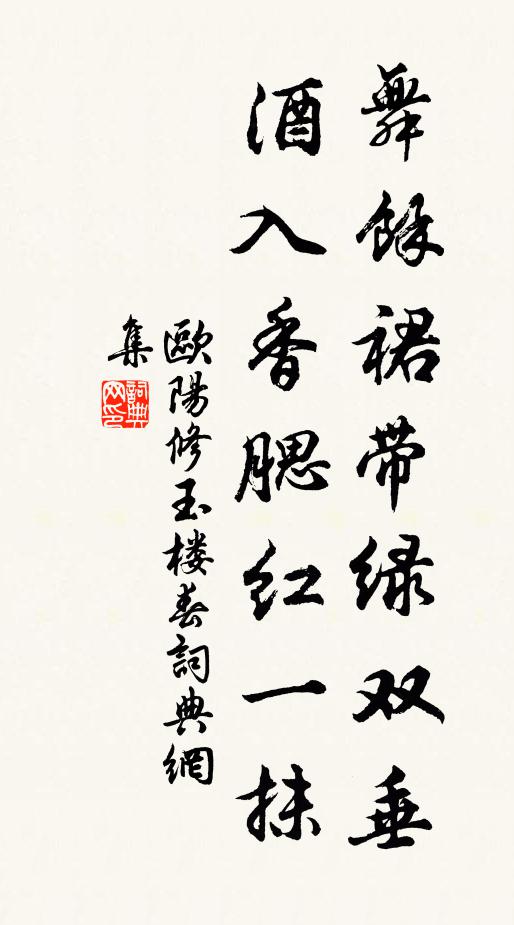 舞餘裙带緑双垂
酒入香腮红一抹
歐陽修玉楼春詞典網
集
詞典
网印